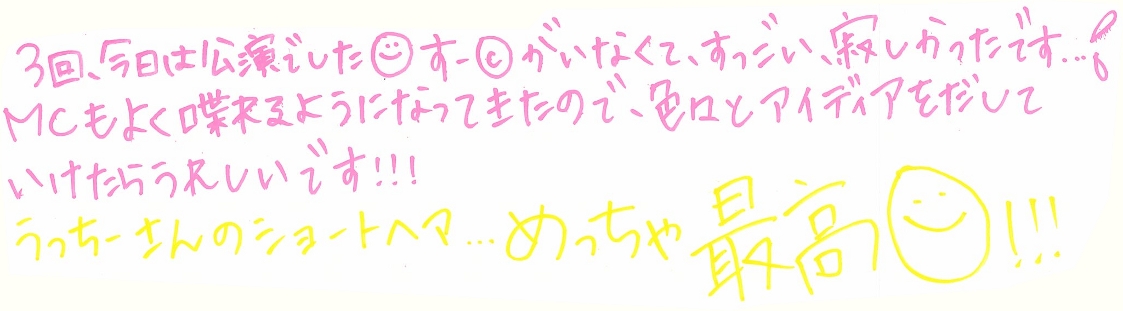 3回、今日は公演でした☺すーⓒがいなくて、すっごい、寂しかったです…!
MCもよく喋れるようになってきたので、色々とアイディアをだして
いけたらうれしいです!!!
うっちーさんのショートヘア…めっちゃ最高☺!!!